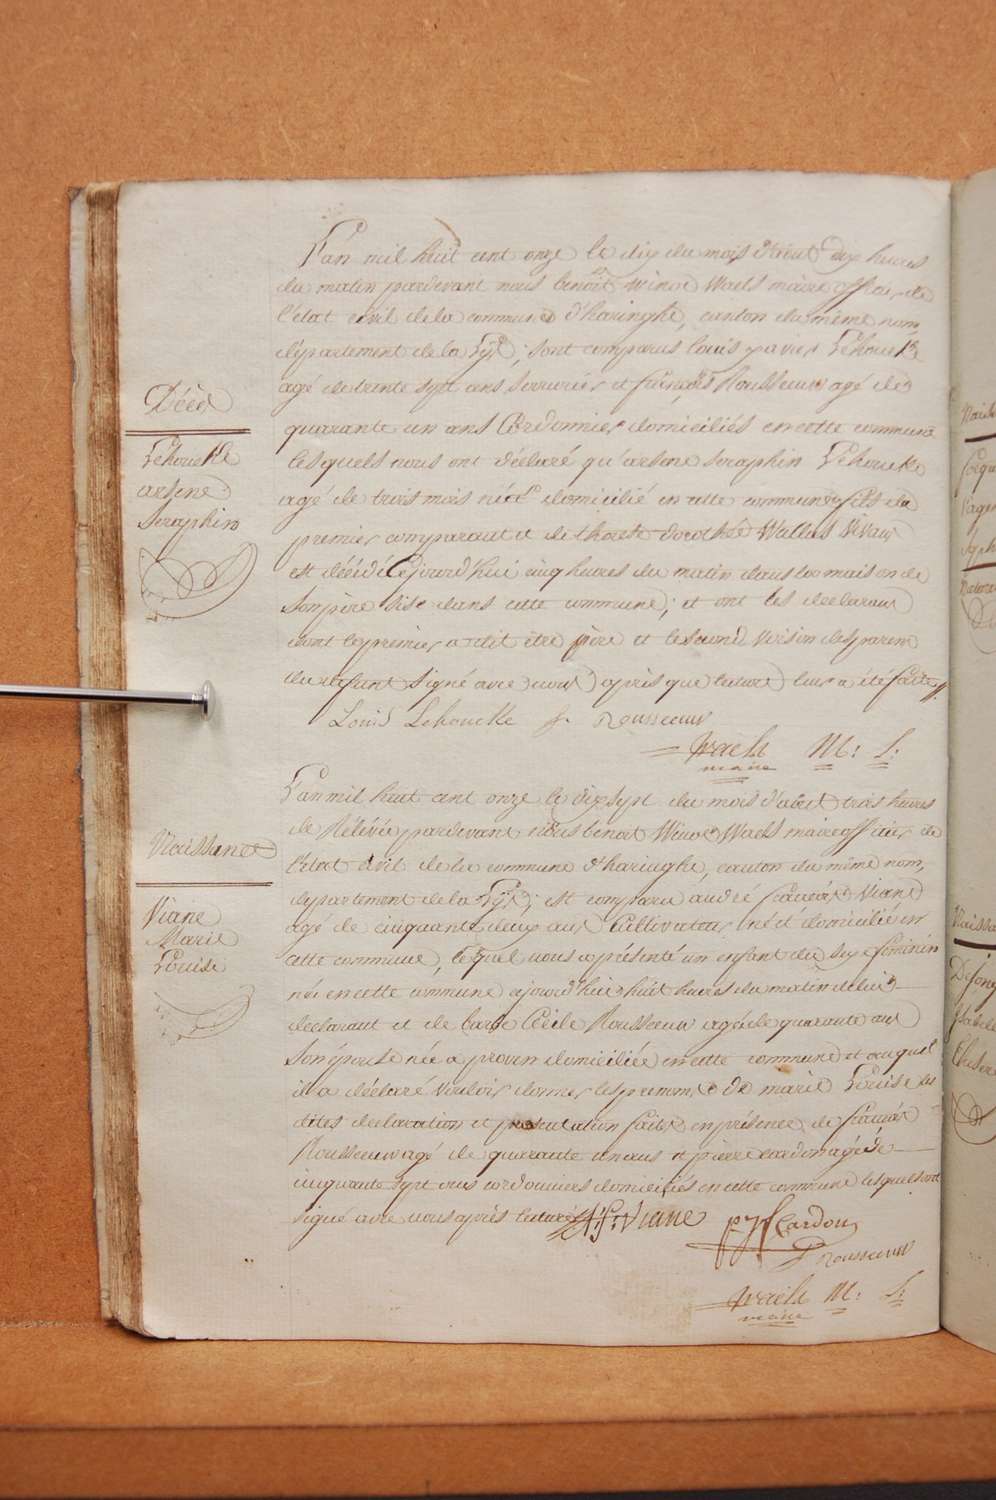 L'an mil huit cent onze le dix du mois d'aout dix heures
du matin pardevant nous benoit winoc Waels maire officier de
l'etat civil de la commune d'haringhe, canton du même nom,
département de la Lys; sont comparus louis xavier Lehoucke
agé de trente sept ans serrurier et françois Rousseeuw agé de
quarante un ans Cordonnier domiciliés en cette commune
Lesquels nous ont déclaré qu'arsene seraphin Lehoucke
agé de trois mois né et domicilié en cette commune fils du
premier comparant et de dorothée
est décédé cejourd'hui cinq heures du matin dans la maison de
son père sise dans cette commune; et ont les declarans
dont le premier a dit être père et le second voisin des parens
du défunt signé avec nous après que lecture leur a été faite
Louis Lehoucke f. Rousseeuw
Waels M: L:
maire
Décès
Lehoucke
arsene
Seraphin
L'an mil huit cent onze le dix sept du mois d'aout trois heures
de Rélévée pardevant nous benoit Winoc Waels maire officier de
l'etat civil de la commune d'haringhe, canton du même nom,
département de la Lys; est comparu andré françois Viane
agé de cinquante deux ans Cultivateur né et domicilié en
cette commune, lequel nous a présenté un enfant du sexe feminin
née en cette commune ajourd'hui huit heures du matin de lui
declarant et de barbe Cécile Rousseeuw agée de quarante ans
son épouse née a proven domiciliée en cette commune et auquel
il a déclaré vouloir donner les prenoms de marie Louise les
dites declaration et presentation faites en présence de françois
Rousseeuw agé de quarante un ans et pierre cardon agé de
cinquante sept ans cordonniers domiciliés en cette commune lesquels ont
signé avec nous après lecture A: f: Viane pjf Cardon
f Rousseeuw
Waels M: L:
maire
Naissance
Viane
Marie
Louise